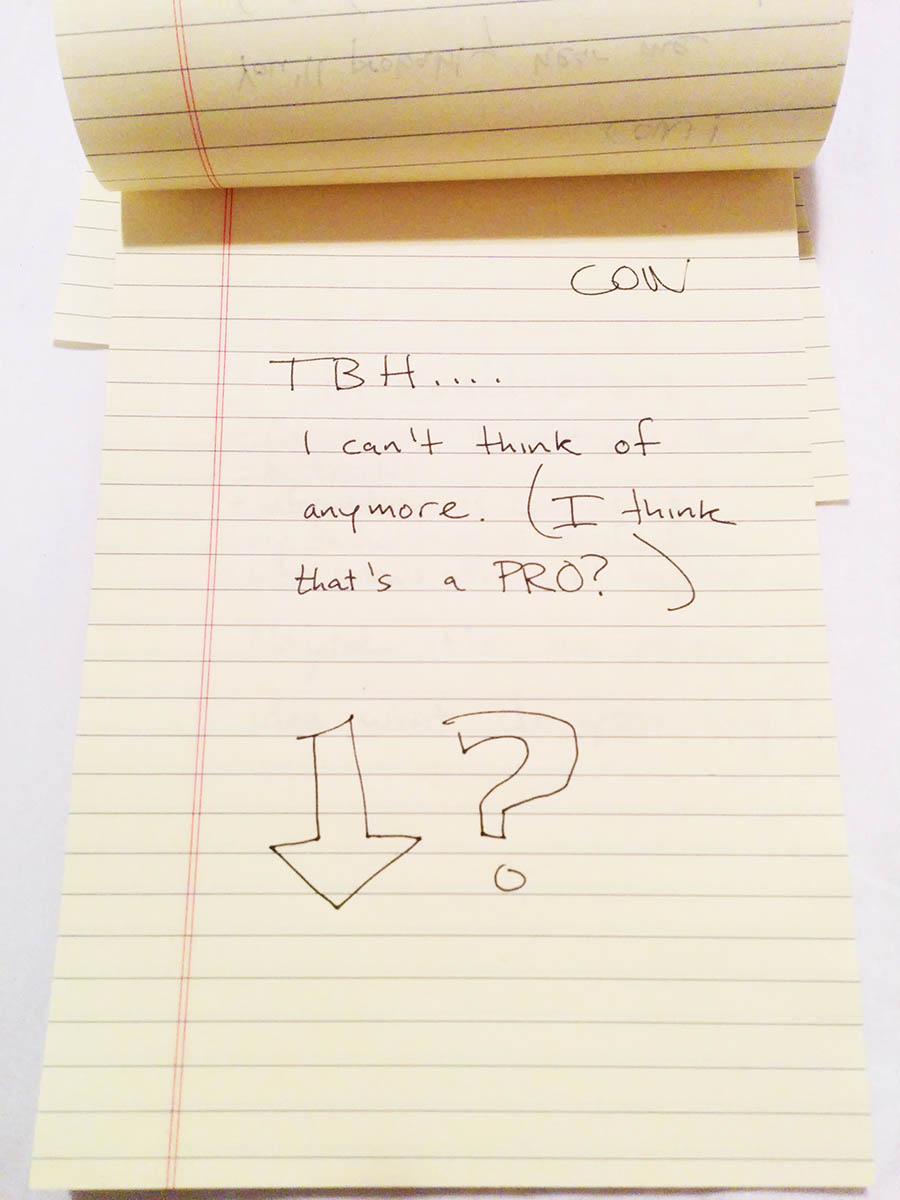 CON
TBH....
I can't think of
anymore. (I think
that's a PRO?)
?